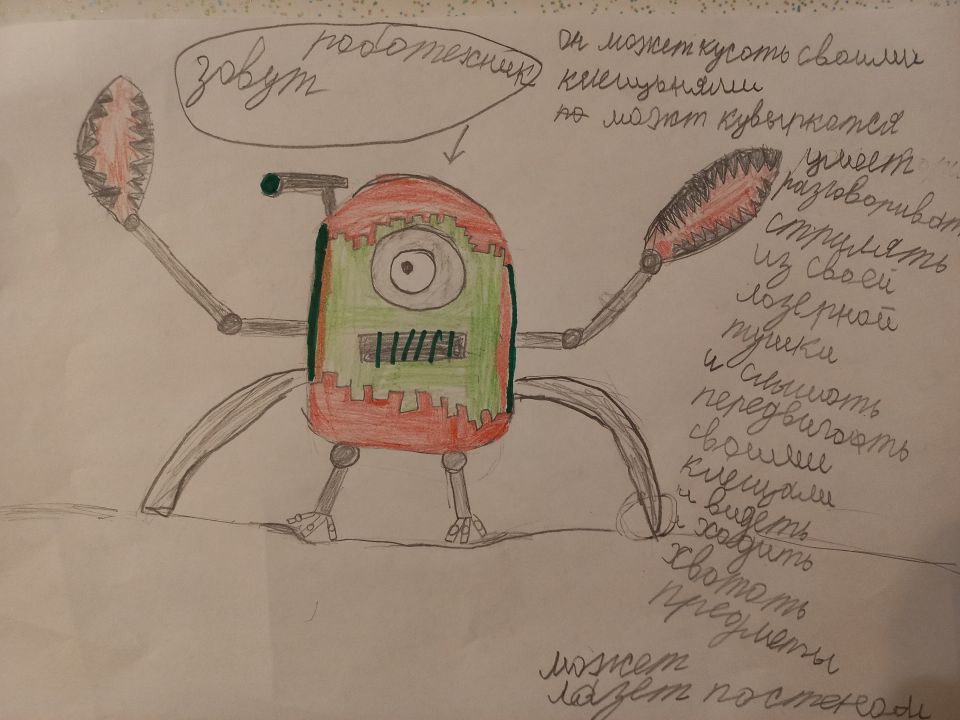 зовут работехник
он может кусать своими
клещьнями
но можт кувыркатся
умеет
разговариват
стрилять
из своей
лозерной
пушки
и слышать
передвигать
своими
клещами
и видеть
и ходить
хватать
предметы
может
лазет по стенам